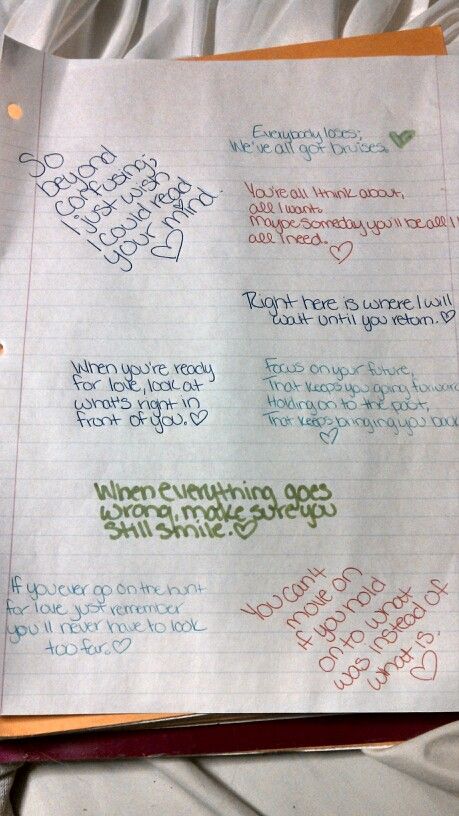 So
beyond
confusing;
I just wish
I could read
your mind.
Everybody loses;
We've all got bruises.
You're all I think about,
all I want.
Maybe someday you'll be all I
all I need.
Right here is where I will
wait until you return.
When you're ready
for love, look at
what's right in
front of you.
Focus on your future,
That keeps you going forward
Holding on to the past,
That keeps bringing you back
When everything goes
wrong, make sure you
still smile.
If you ever go on the hunt
for love just remember
you'll never have to look
too far.
You can't
move on
if you hold
on to what
was instead of
what is.